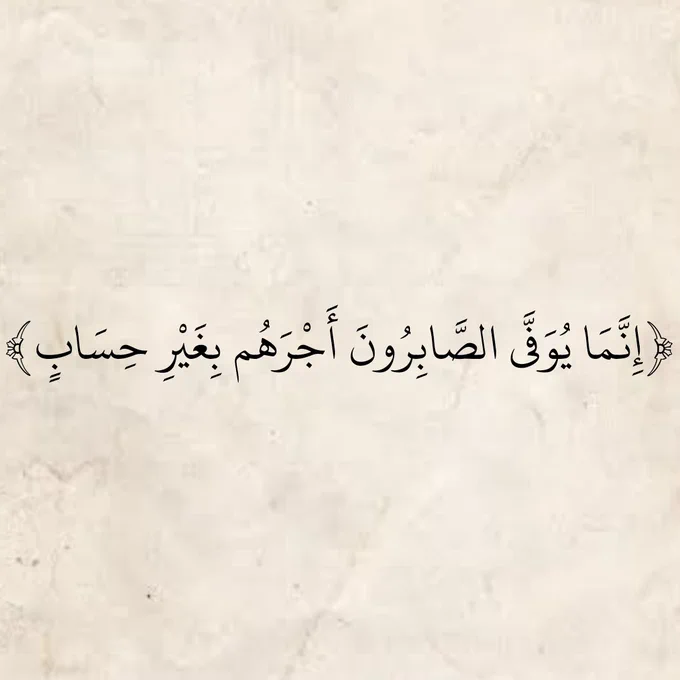 ﴿إِنَّمَا يُوَفَّى الصَّابِرُونَ أَجْرَهُم بِغَيْرِ حِسَابٍ﴾